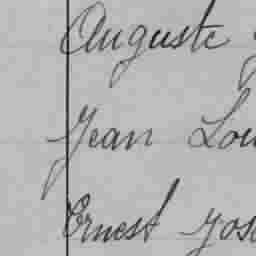 Auguste
Jean Lou
Ernest Jos